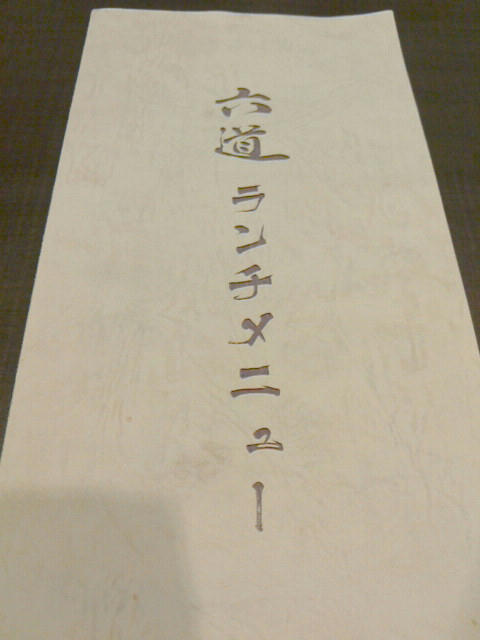 六道ランチメニュー